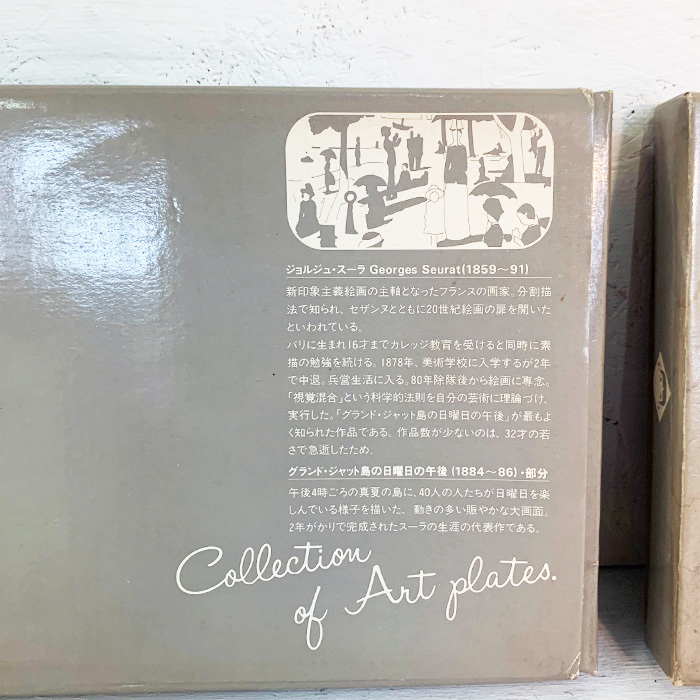 ジョルジュ・スーラ Georges Seurat(1859〜91)
新印象主義絵画の主軸となったフランスの画家。分割描
法で知られ、セザンヌとともに20世紀絵画の扉を開いた
といわれている。
パリに生まれ16才までカレッジ教育を受けると同時に素
描の勉強を続ける。1878年、美術学校に入学するが2年
で中退。兵営生活に入る。80年除隊後から絵画に専念。
「視覚混合」という科学的法則を自分の芸術に理論づけ、
実行した。「グランド・ジャット島の日曜日の午後」が最もよ
く知られた作品である。作品数が少ないのは、32才の若
さで急逝したため。
グランド・ジャット島の日曜日の午後 (1884〜86)・部分
午後4時ごろの真夏の島に、40人の人たちが日曜日を楽
しんでいる様子を描いた、動きの多い賑やかな大画面。
2年がかりで完成されたスーラの生涯の代表作である。
Collection
of Art plates.